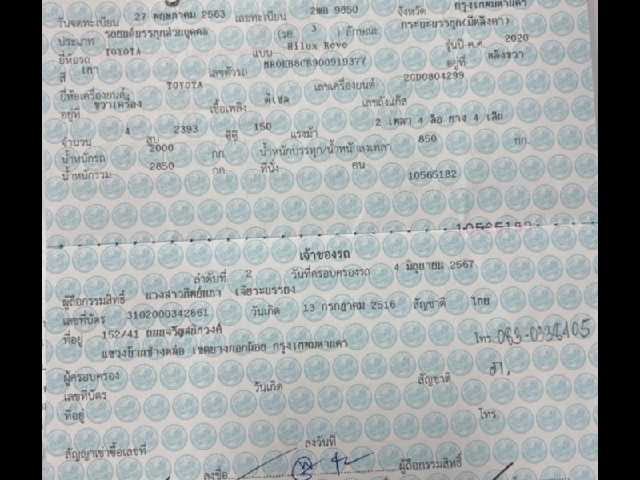 วันจดทะเบียน 27 พฤษภาคม 2563 เลขทะเบียน 2ขอ 9850 จังหวัด กรุงเทพมหานคร
ประเภท รถยนต์บรรทุกส่วนบุคคล (รย. 3 ) ลักษณะ กระบะบรรทุก(มีหลังคา)
ยี่ห้อรถ TOYOTA แบบ Hilux Revo รุ่นปี ค.ศ. 2020
สี เทา เลขตัวรถ MR0EB8CB900919377 อยู่ที่ หลังขวา
ยี่ห้อเครื่องยนต์ TOYOTA เลขเครื่องยนต์ 2GD0804299
อยู่ที่ ขวาเครื่อง เชื้อเพลิง ดีเซล เลขถังแก๊ส
จำนวน 4 สูบ 2393 ซีซี 150 แรงม้า 2 เพลา 4 ล้อ ยาง 4 เส้น
น้ำหนักรถ 2000 กก. น้ำหนักบรรทุก/น้ำหนักลงเพลา 850 กก.
น้ำหนักรวม 2850 กก. ที่นั่ง คน
10565182
10565182
เจ้าของรถ
ลำดับที่ 2 วันที่ครอบครองรถ 4 มิถุนายน 2567
ผู้ถือกรรมสิทธิ์ นางสาวทิพย์นภา เจียระบรรยง
เลขที่บัตร 3102000342861 วันเกิด 13 กรกฎาคม 2516 สัญชาติ ไทย
ที่อยู่ 152/41 ถนนจรัญสนิทวงศ์
แขวงบ้านช่างหล่อ เขตบางกอกน้อย กรุงเทพมหานคร โทร.
ผู้ครอบครอง
เลขที่บัตร วันเกิด สัญชาติ
ที่อยู่ โทร.
สัญญาเช่าซื้อเลขที่ ลงวันที่
ลงชื่อ ผู้ถือกรรมสิทธิ์